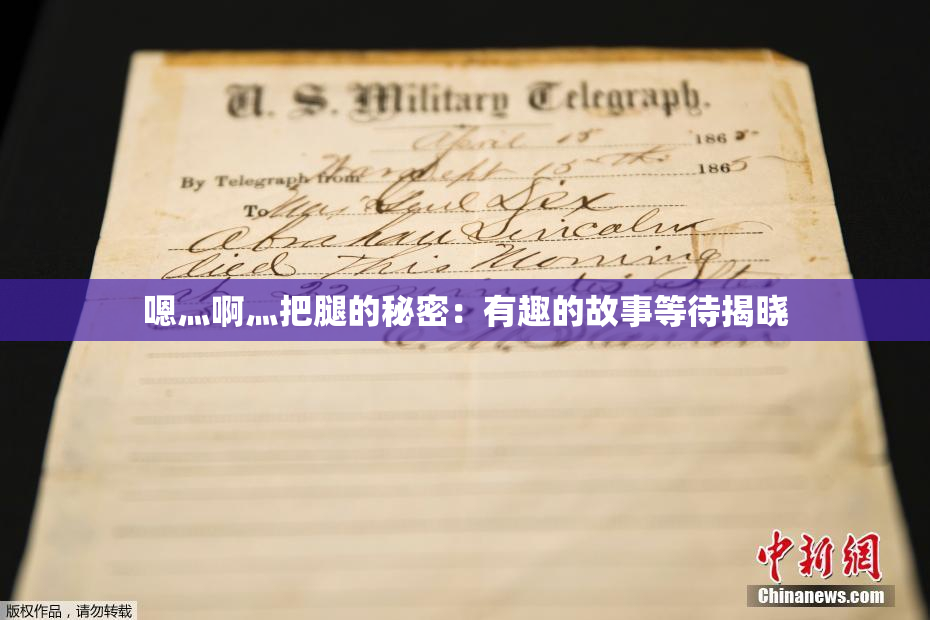 U. S. Military Telegraph.
April 15 1865
By Telegraph from War Dept 15th 1865
To Maj Genl Dix
Abraham Lincoln
died This Morning
22 minutes after
嗯灬啊灬把腿的秘密：有趣的故事等待揭晓
中新网
Chinanews.com
版权作品，请勿转载